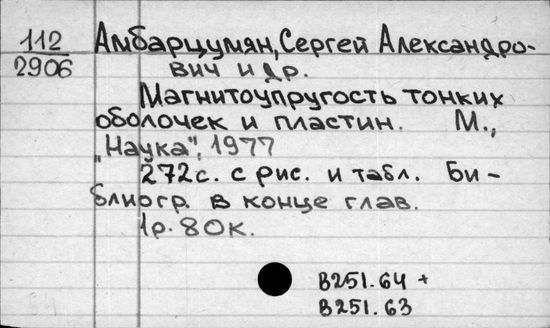 112
2906
Амбарцумян, Сергей Александро-
вич и др.
Магнитоупругость тонких
оболочек и пластин. М.,
„Наука", 1977
272с. с рис. и табл. Би-
блиогр. в конце глав.
1р. 80к.
В251.64 +
В251.63